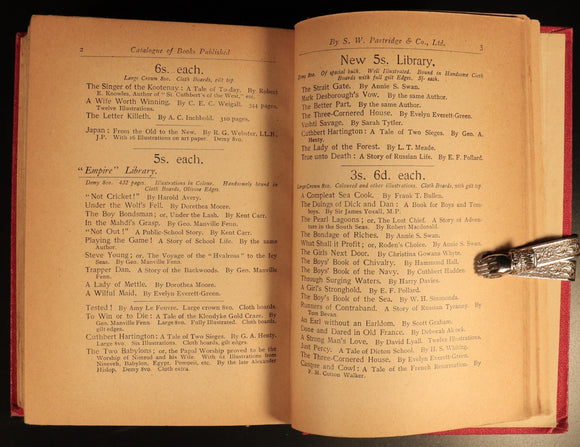 2 Catalogue of Books Published
6s. each.
Large Crown 8vo. Cloth Boards, gilt top.
The Singer of the Kootenay : A Tale of To-day. By Robert
E. Knowles, Author of "St. Cuthbert's of the West," etc.
A Wife Worth Winning. By C. E. C. Weigall. 344 pages.
Twelve Illustrations.
The Letter Killeth. By A. C. Inchbold. 310 pages.
Japan : From the Old to the New. By R. G. Webster, LL.B.,
J.P. With 16 Illustrations on art paper. Demy 8vo.
5s. each.
"Empire" Library.
Demy 8vo. 432 pages. Illustrations in Colour. Handsomely bound in
Cloth Boards, Olivine Edges.
"Not Cricket!" By Harold Avery.
Under the Wolf's Fell. By Dorothea Moore.
The Boy Bondsman; or, Under the Lash. By Kent Carr.
In the Mahdi's Grasp. By Geo. Manville Fenn.
"Not Out!" A Public-School Story. By Kent Carr.
Playing the Game! A Story of School Life. By the same
Author.
Steve Young; or, The Voyage of the "Hvalross" to the Icy
Seas. By Geo. Manville Fenn.
Trapper Dan. A Story of the Backwoods. By Geo. Manville
Fenn.
A Lady of Mettle. By Dorothea Moore.
A Wilful Maid. By Evelyn Everett-Green.
Tested! By Amy Le Feuvre. Large Crown 8vo. Cloth boards.
To Win or to Die : A Tale of the Klondyke Gold Craze. By
Geo. Manville Fenn. Large 8vo. Fully Illustrated. Cloth boards,
gilt edges.
Cuthbert Hartington : A Tale of Two Sieges. By G. A. Henty.
Large 8vo. Six Illustrations. Cloth boards, gilt edges.
The Two Babylons; or, the Papal Worship proved to be the
Worship of Nimrod and his Wife. With 61 Illustrations from
Nineveh, Babylon, Egypt, Pompeii, etc. By the late Alexander
Hislop. Demy 8vo. Cloth extra.
By S. W. Partridge & Co., Ltd. 3
New 5s. Library.
Demy 8vo. Of special bulk. Well Illustrated. Bound in Handsome Cloth
Boards with full gilt Edges. 5/- each.
The Strait Gate. By Annie S. Swan.
Mark Desborough's Vow. By the same Author.
The Better Part. By the same Author.
The Three-Cornered House. By Evelyn Everett-Green.
Vashti Savage. By Sarah Tytler.
Cuthbert Hartington : A Tale of Two Sieges. By Geo. A.
Henty.
The Lady of the Forest. By L. T. Meade.
True unto Death : A Story of Russian Life. By E. F. Pollard.
3s. 6d. each.
Large Crown 8vo. Coloured and other illustrations. Cloth Boards, with gilt top
A Compleat Sea Cook. By Frank T. Bullen.
The Doings of Dick and Dan : A Book for Boys and Tom-
boys. By Sir James Yoxall, M.P.
The Pearl Lagoons ; or, The Lost Chief. A Story of Adven-
ture in the South Seas. By Robert Macdonald.
The Bondage of Riches. By Annie S. Swan.
What Shall it Profit ; or, Roden's Choice. By Annie S. Swan.
The Girls Next Door. By Christina Gowans Whyte.
The Boys' Book of Chivalry. By Hammond Hall.
The Boys' Book of the Navy. By Cuthbert Hadden.
Through Surging Waters. By Harry Davies.
A Girl's Stronghold. By E. F. Pollard.
The Boy's Book of the Sea. By W. H. Simmonds.
Runners of Contraband. A Story of Russian Tyranny. By
Tom Bevan.
An Earl without an Earldom. By Scott Graham.
Dane and Dared in Old France. By Deborah Alcock.
A Strong Man's Love. By David Lyall. Twelve Illustrations.
Just Percy. A Tale of Dicton School. By H. S. Whiting.
The Three-Cornered House. By Evelyn Everett-Green.
Casque and Cowl : A Tale of the French Reformation. By
F. M. Cotton Walker.